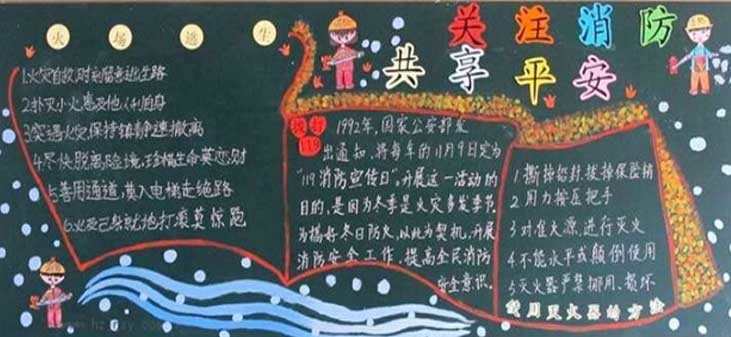 火场逃生
关注消防
共享平安
1.火灾自救,时刻留意逃生路
2.扑灭小火,惠及他人利自身
3.突遇火灾,保持镇静速撤离
4.尽快脱离险境,珍惜生命莫恋财
5.善用通道,莫入电梯走绝路
6.火及己身,就地打滚莫惊跑
119
1992年,国家公安部发
出通知,将每年的11月9日定为
"119消防宣传日",开展这一活动的
目的,是因为冬季是火灾多发季节.
为搞好冬日防火,以此为契机,开展
消防安全工作,提高全民消防
安全意识.
1撕掉铅封,拔掉保险销
2.用力按压把手
3.对准火源,进行灭火
4.不能水平或颠倒使用
5.灭火器严禁挪用、损坏
使用灭火器的方法